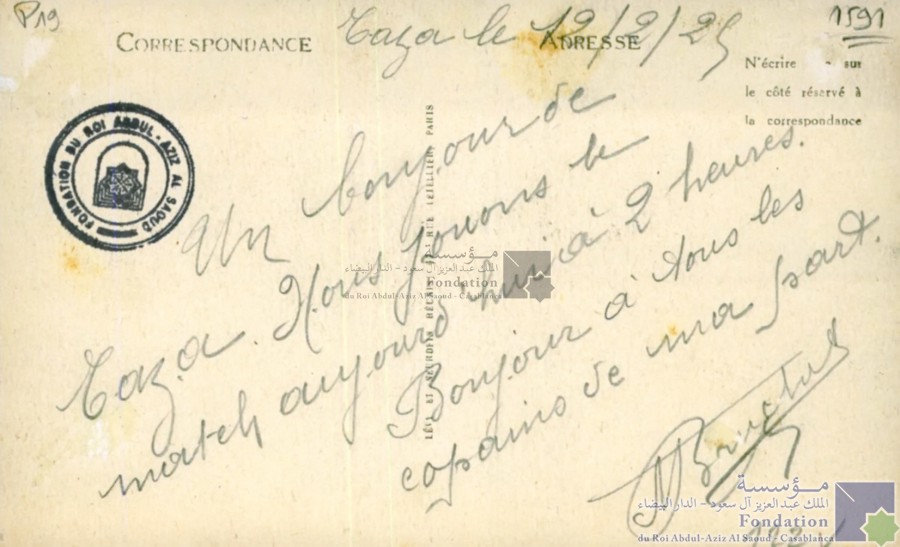 P19
1591
Taza le 12/2/25
CORRESPONDANCE
ADRESSE
N'écrire sur
le côté réservé à
la correspondance
FONDATION DU ROI ABDUL-AZIZ AL SAOUD
Un bonjour de
Taza. Nous jouons le
match aujourd'hui à 2 heures.
Bonjour à tous les
copains de ma part.
LÉVY ET NEURDEIN RÉUNIS, LETELLIER, PARIS
مؤسسة
الملك عبد العزيز آل سعود - الدار البيضاء
Fondation
du Roi Abdul-Aziz Al Saoud - Casablanca
مؤسسة
الملك عبد العزيز آل سعود - الدار البيضاء
Fondation
du Roi Abdul-Aziz Al Saoud - Casablanca